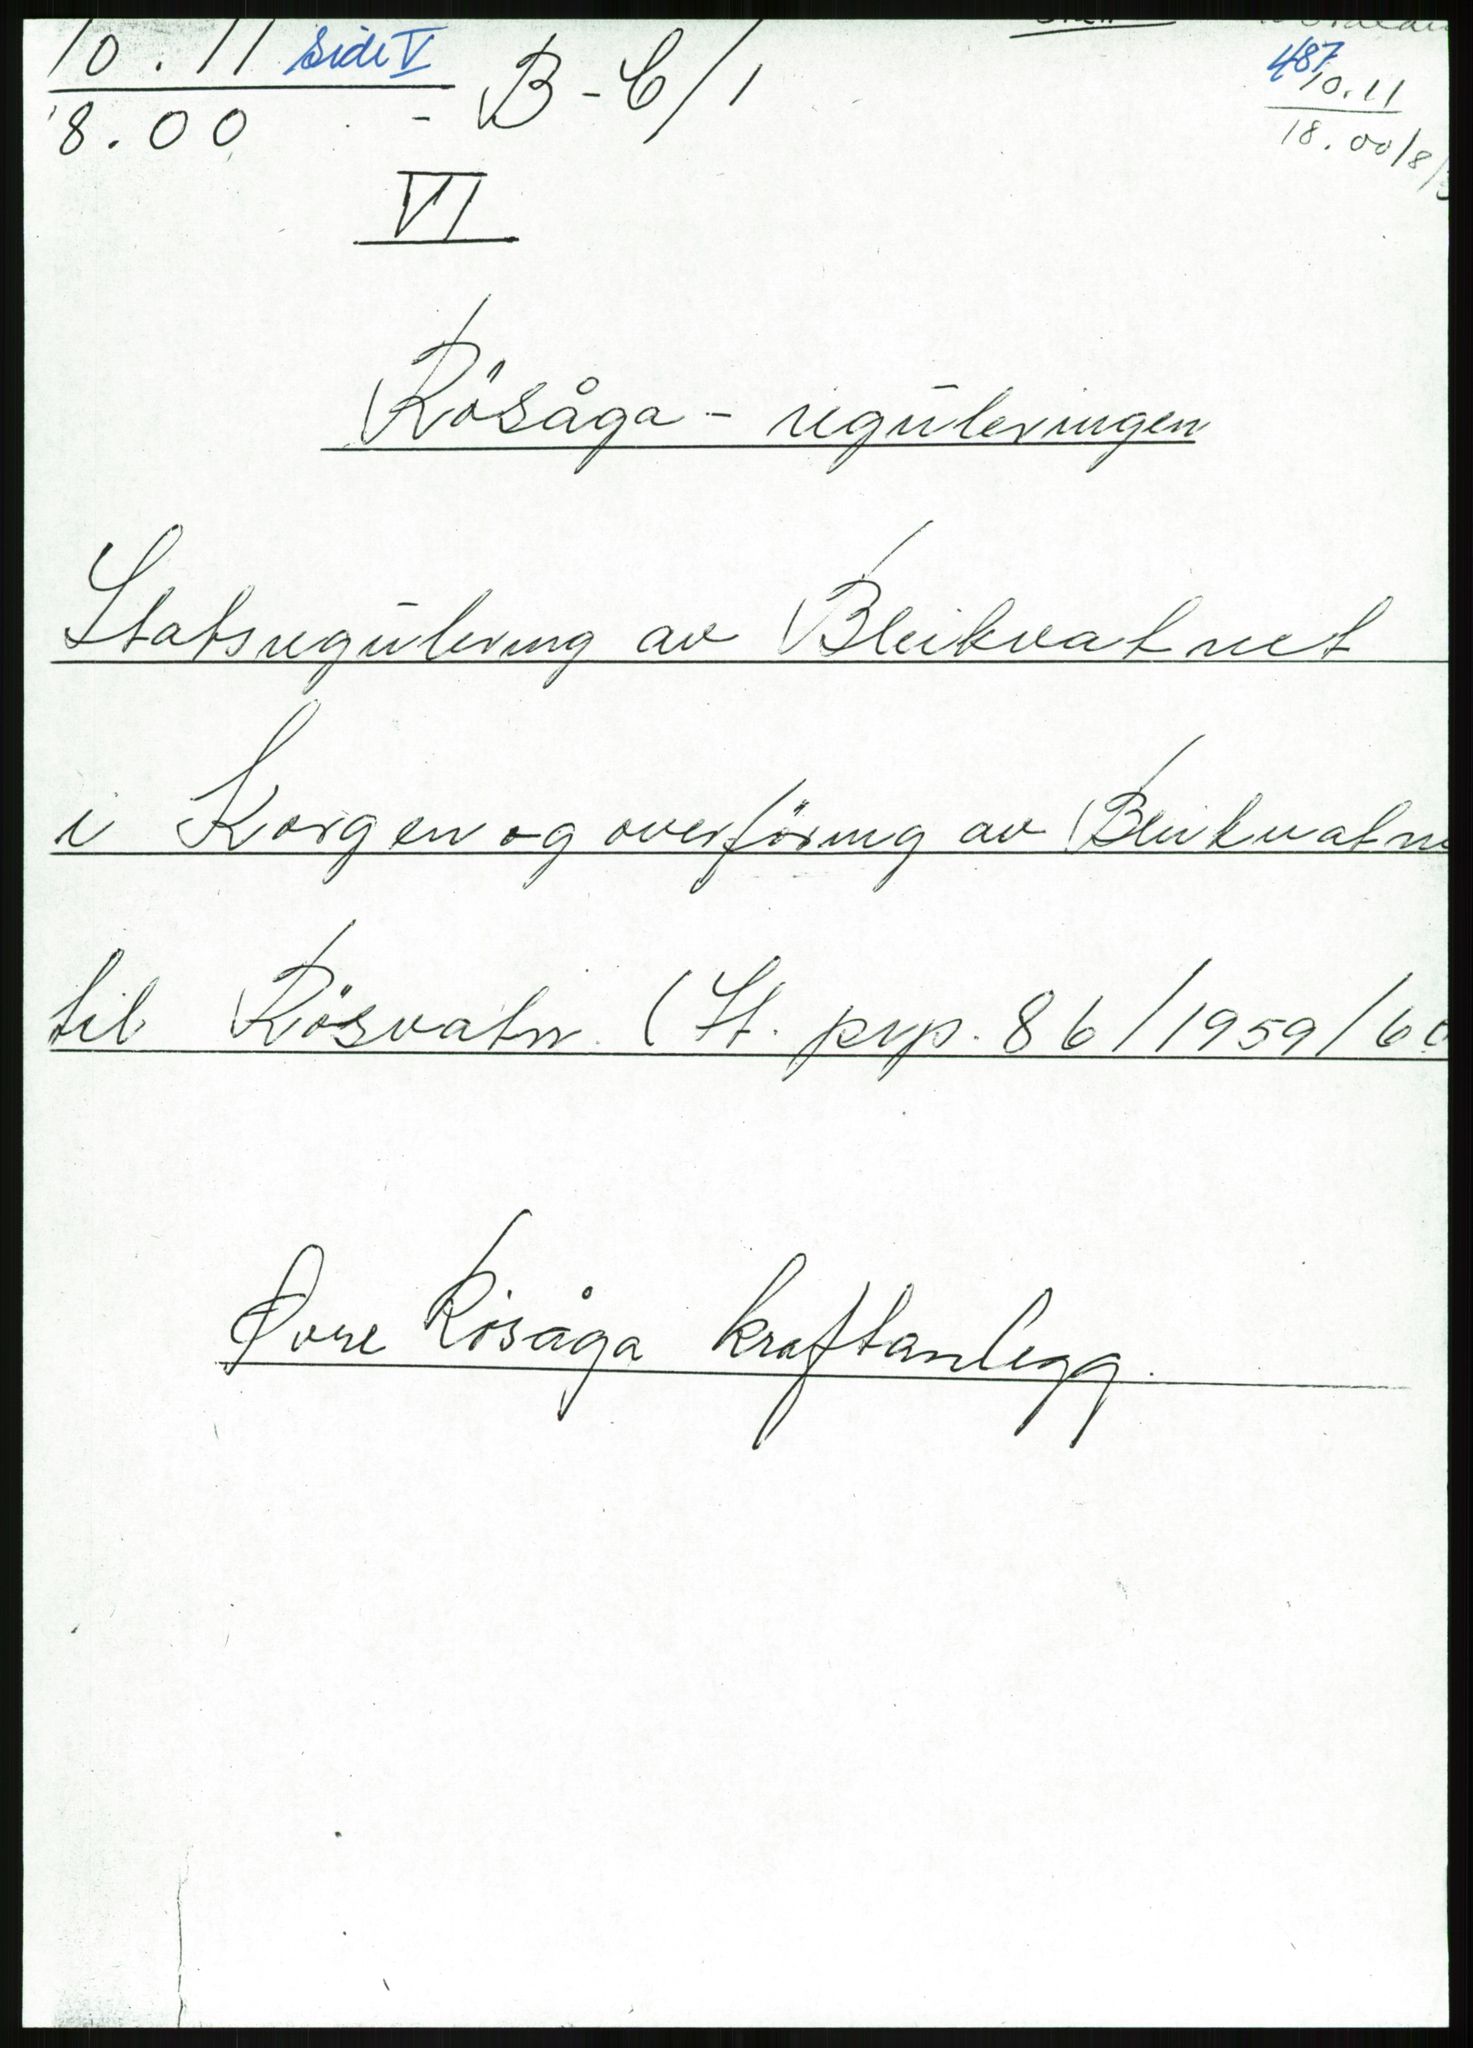 10.11 side V
18.00 - B-C/1
487
10.11
18.00/8/
VI
Rösåga - reguleringen
Statsregulering av Bleikvatnet
i Korgen og overföring av Bleikvatne
til Rösvatn (St. prp. 86/1959/60
Øvre Rösåga kraftanlegg.